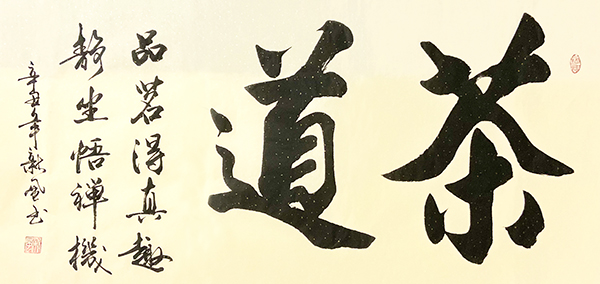 茶道
品茗得真趣
静坐悟禅機
辛丑年新風书